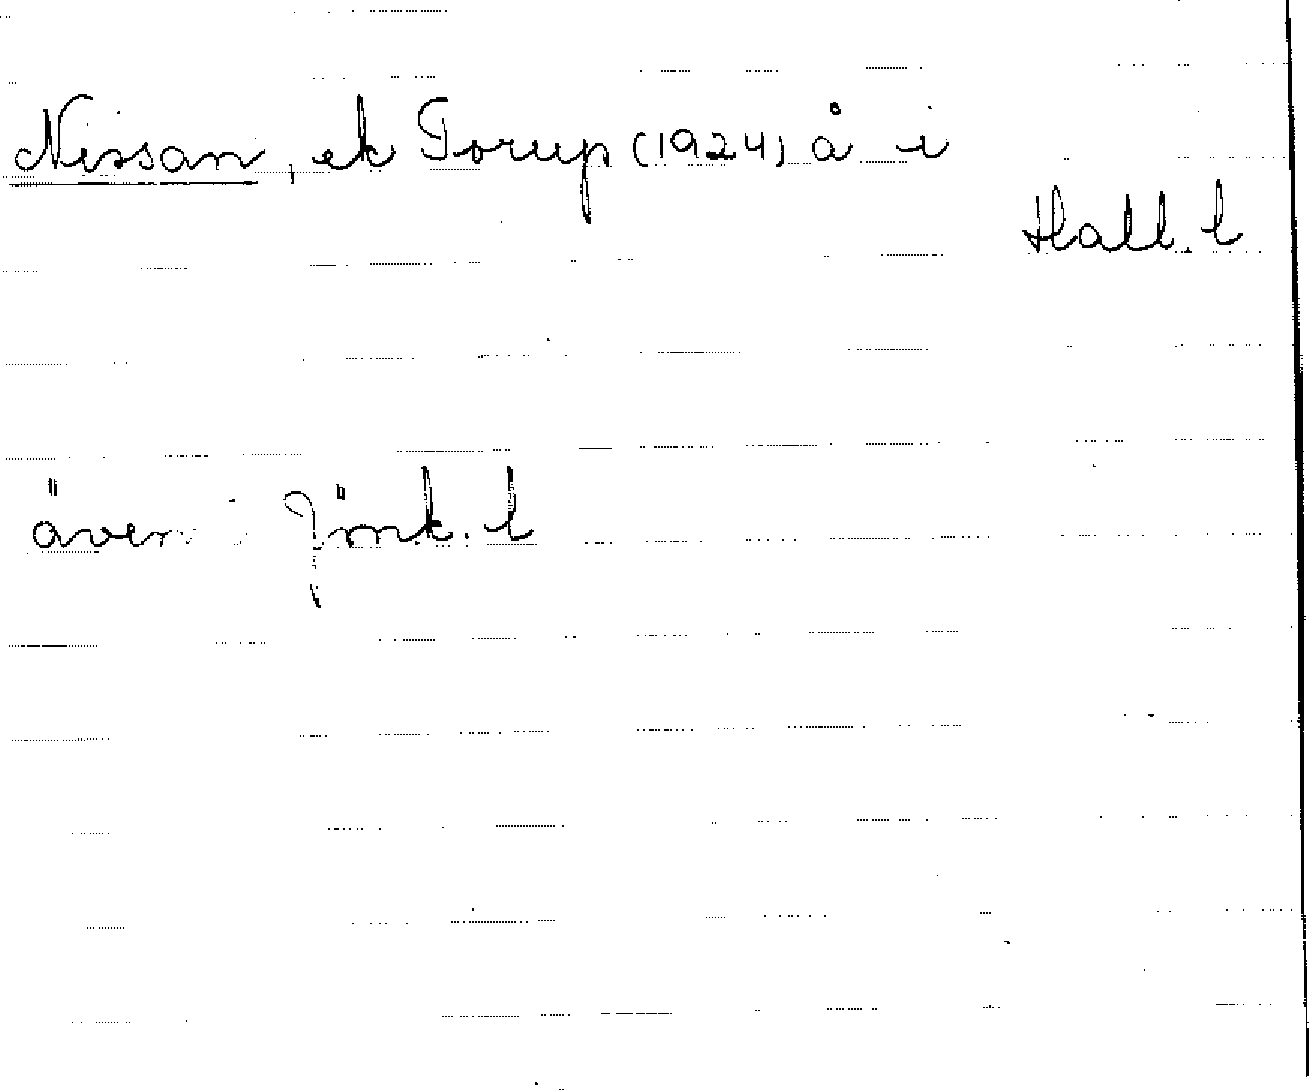 Nissan, ek Torup (1924) å i
Hall. l
även i Jönk. l